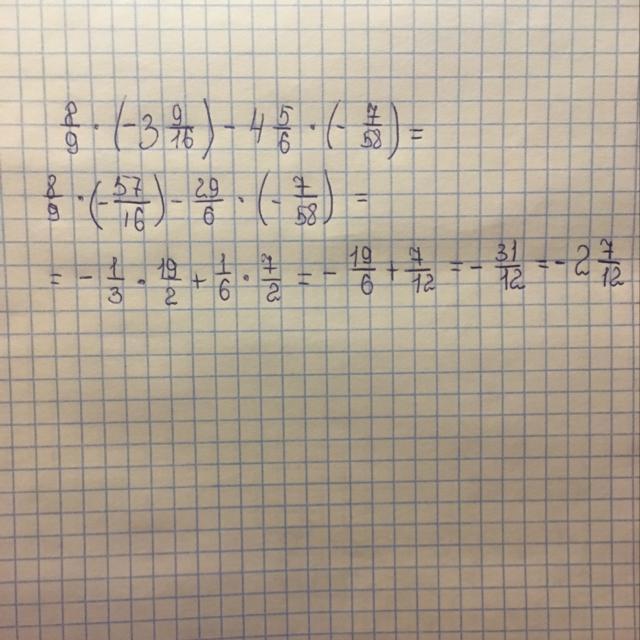 8/9 · (-3 9/16) - 4 5/6 · (- 7/58) =
8/9 · (- 57/16) - 29/6 · (- 7/58) =
= - 1/3 · 19/2 + 1/6 · 7/2 = - 19/6 + 7/12 = - 31/12 = - 2 7/12